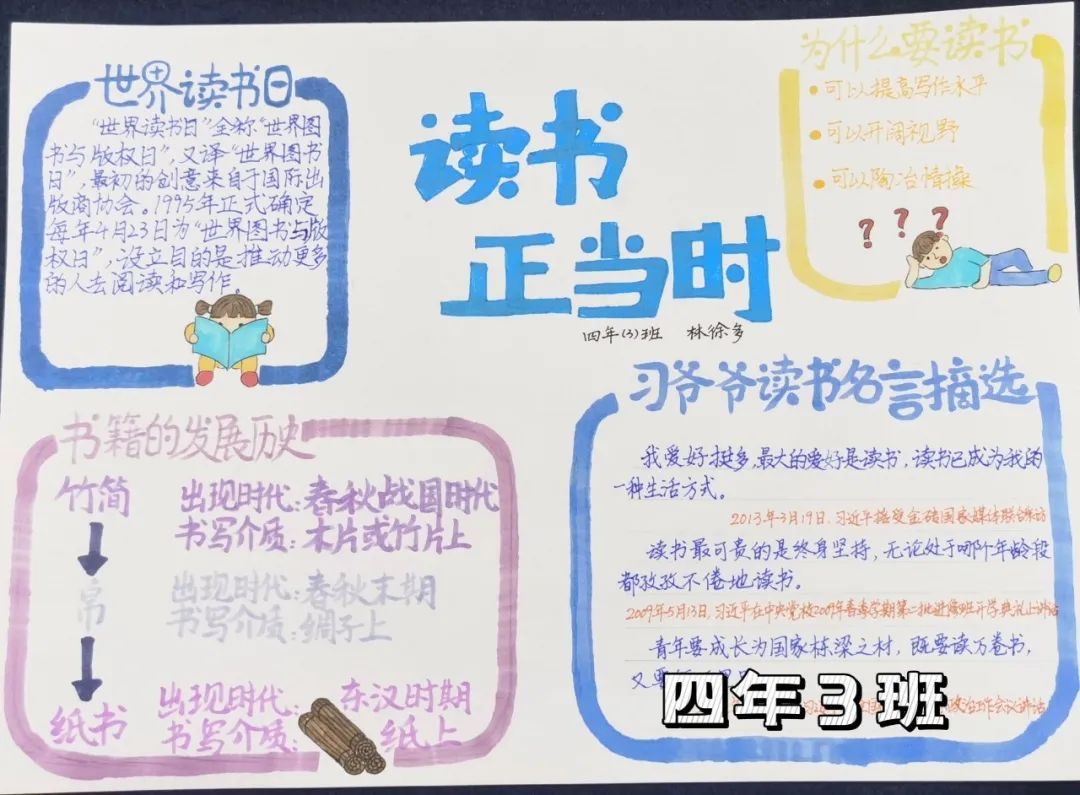 世界读书日
“世界读书日”全称“世界图
书与版权日”,又译“世界图书
日”,最初的创意来自于国际出
版商协会。1995年正式确定
每年4月23日为“世界图书与版
权日”,设立目的是推动更多
的人去阅读和写作。
读书
正当时
四年(3)班 林徐多
为什么要读书
可以提高写作水平
可以开阔视野
可以陶冶情操
? ? ?
书籍的发展历史
竹简
出现时代:春秋战国时代
书写介质:木片或竹片上
帛
出现时代:春秋末期
书写介质:绸子上
纸书
出现时代:东汉时期
书写介质:纸上
习爷爷读书名言摘选
我爱好挺多,最大的爱好是读书,读书已成为我的
一种生活方式。
2013年3月19日,习近平接受金砖国家媒体联合采访
读书最可贵的是终身坚持,无论处于哪个年龄段
都孜孜不倦地读书。
2009年5月13日,习近平在中央党校2009年春季学期第二批进修班开学典礼上讲话
青年要成长为国家栋梁之材,既要读万卷书,
又要
政治工作会议讲话
四年3班